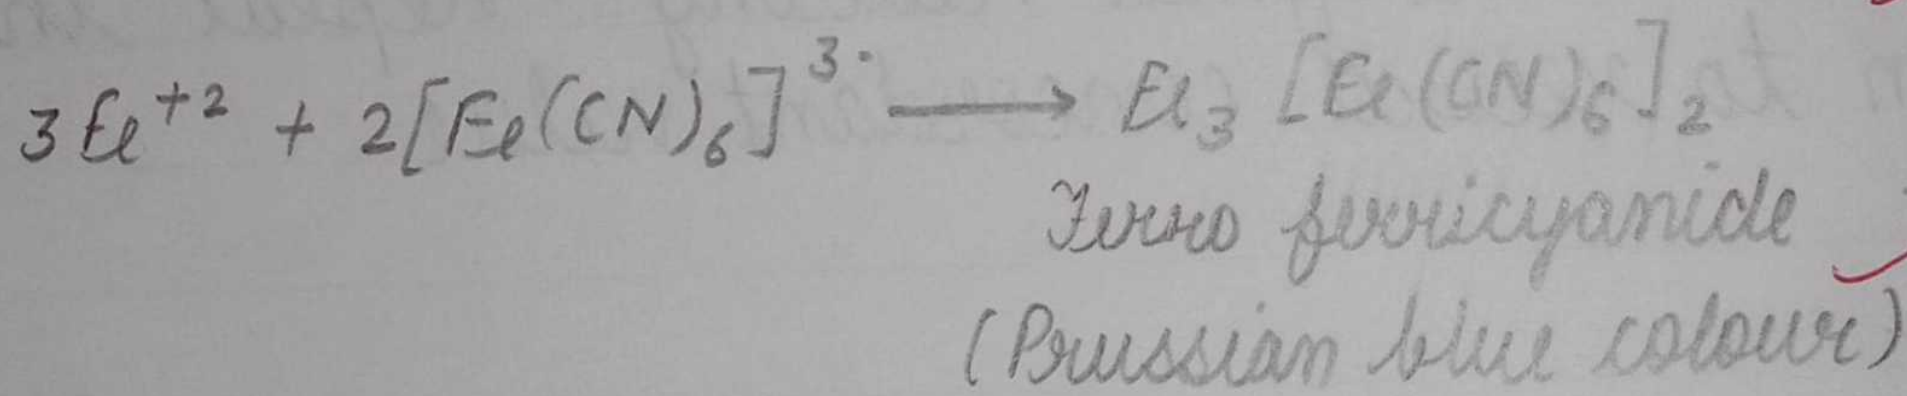 3Fe⁺² + 2[Fe(CN)₆]³⁻ ⟶ Fe₃[Fe(CN)₆]₂
Ferro ferricyanide
(Prussian blue colour)